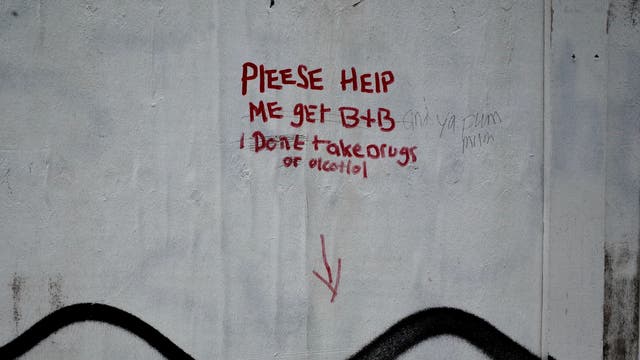 PlEESE HElP
ME gET B+B and ya pum
mum
I DonE takE Drugs
or alcohol